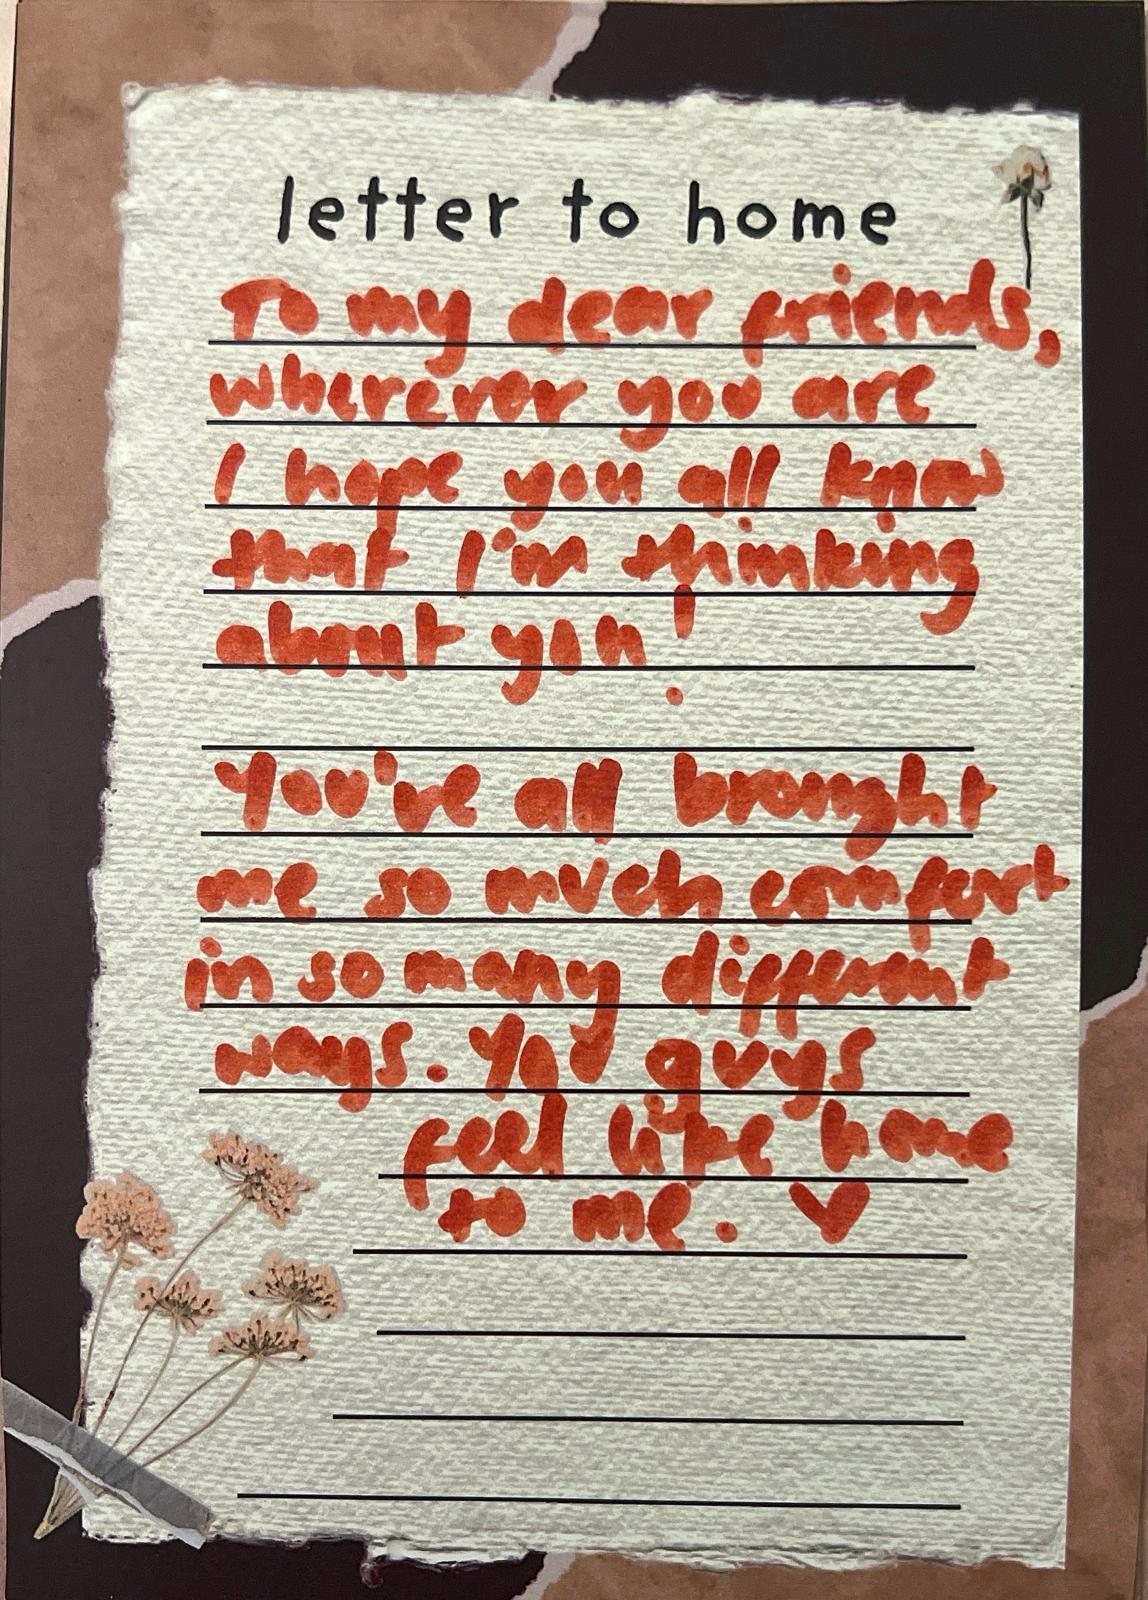 letter to home
To my dear friends,
wherever you are
I hope you all know
that I'm thinking
about you!
You've all brought
me so much comfort
in so many different
ways. You guys
feel like home
to me. ♥